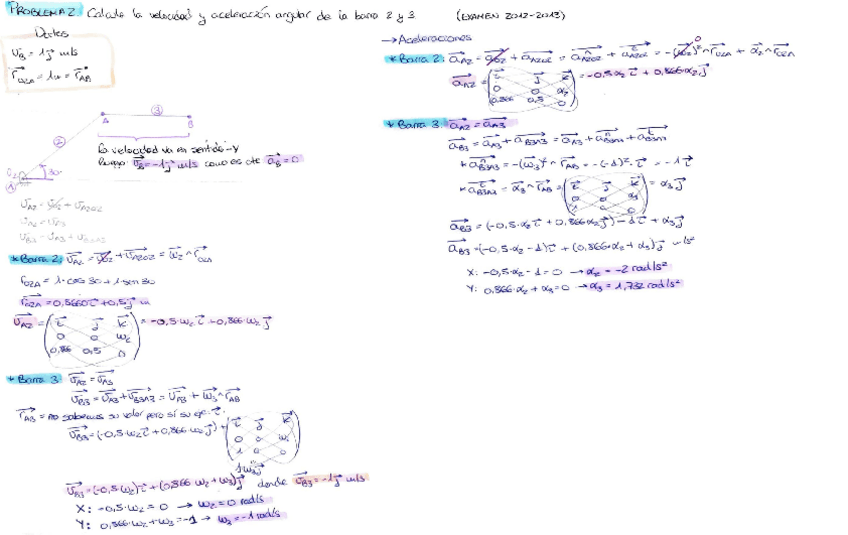 PROBLEMA 2: Calcula la velocidad y aceleración angular de la barra 2 y 3 (EXAMEN 2012-2013)
Datos
v_B = 1j m/s
r_O2A = 1m = r_AB
2
3
A
B
30º
1
La velocidad va en sentido -y
luego v_B = -1j m/s como es cte a_B = 0
v_A2 = v_O2 + v_A2O2
v_A2 = v_A3
v_B3 = v_A3 + v_B3A3
* Barra 2: v_A2 = v_O2 + v_A2O2 = ω_2 ^ r_O2A
r_O2A = 1·cos 30 + 1·sen 30
r_O2A = 0,8660 i + 0,5 j m
v_A2 = ( i j k
0 0 ω_2
0,866 0,5 0 ) = -0,5·ω_2 i + 0,866·ω_2 j
* Barra 3: v_A2 = v_A3
v_B3 = v_A3 + v_B3A3 = v_A3 + ω_3 ^ r_AB
r_AB = no sabemos su valor pero sí su eje i
v_B3 = (-0,5·ω_2 i + 0,866 ω_2 j) + ( i j k
0 0 ω_3
1 0 0 )
1ω_3 j
v_B3 = (-0,5·ω_2) i + (0,866·ω_2 + ω_3) j donde v_B3 = -1j m/s
X: -0,5·ω_2 = 0 → ω_2 = 0 rad/s
Y: 0,866·ω_2 + ω_3 = -1 → ω_3 = -1 rad/s
→ Aceleraciones
* Barra 2: a_A2 = a_O2 + a_A2O2 = a^n_A2O2 + a^t_A2O2 = -(ω_2)² ^ r_O2A + α_2 ^ r_O2A
0
a_A2 = ( i j k
0 0 α_2
0,866 0,5 0 ) = -0,5·α_2 i + 0,866·α_2 j
* Barra 3: a_A2 = a_A3
a_B3 = a_A3 + a_B3A3 = a_A3 + a^n_B3A3 + a^t_B3A3
* a^n_B3A3 = -(ω_3)² ^ r_AB = -(-1)²·i = -1 i
* a^t_B3A3 = α_3 ^ r_AB = ( i j k
0 0 α_3
1 0 0 ) = α_3 j
a_B3 = (-0,5·α_2 i + 0,866 α_2 j) - 1 i + α_3 j
a_B3 = (-0,5·α_2 - 1) i + (0,866·α_2 + α_3) j m/s²
X: -0,5·α_2 - 1 = 0 → α_2 = -2 rad/s²
Y: 0,866·α_2 + α_3 = 0 → α_3 = 1,732 rad/s²